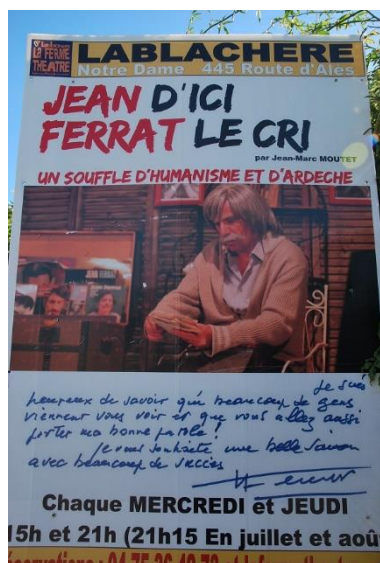 La FERME
THEATRE
LABLACHERE
Notre Dame 445 Route d'Ales
JEAN D'ICI
FERRAT LE CRI
par Jean-Marc MOUTET
UN SOUFFLE D'HUMANISME ET D'ARDECHE
JEAN FERRAT
Je suis
heureux de savoir que beaucoup de gens
viennent vous voir et que vous allez aussi
porter ma bonne parole !
Je vous souhaite une belle saison
avec beaucoup de succès
Chaque MERCREDI et JEUDI
15h et 21h (21h15 En juillet et aoû